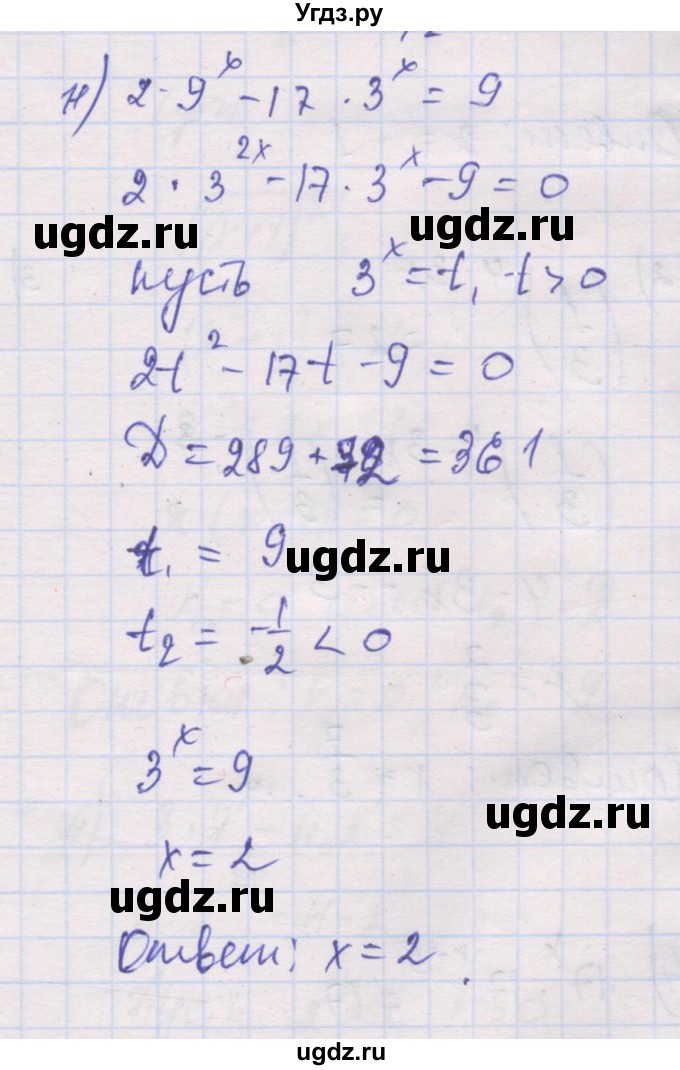 Угдз.ру
н) 2·9^x − 17·3^x = 9
2·3^{2x} − 17·3^x − 9 = 0
ugdz.ru
ugdz.ru
пусть 3^x = t, t > 0
2t² − 17t − 9 = 0
D = 289 + 72 = 361
t₁ = 9
ugdz.ru
t₂ = −1/2 < 0
3^x = 9
ugdz.ru
x = 2
ugdz.ru
Ответ: x = 2.
ugdz.ru